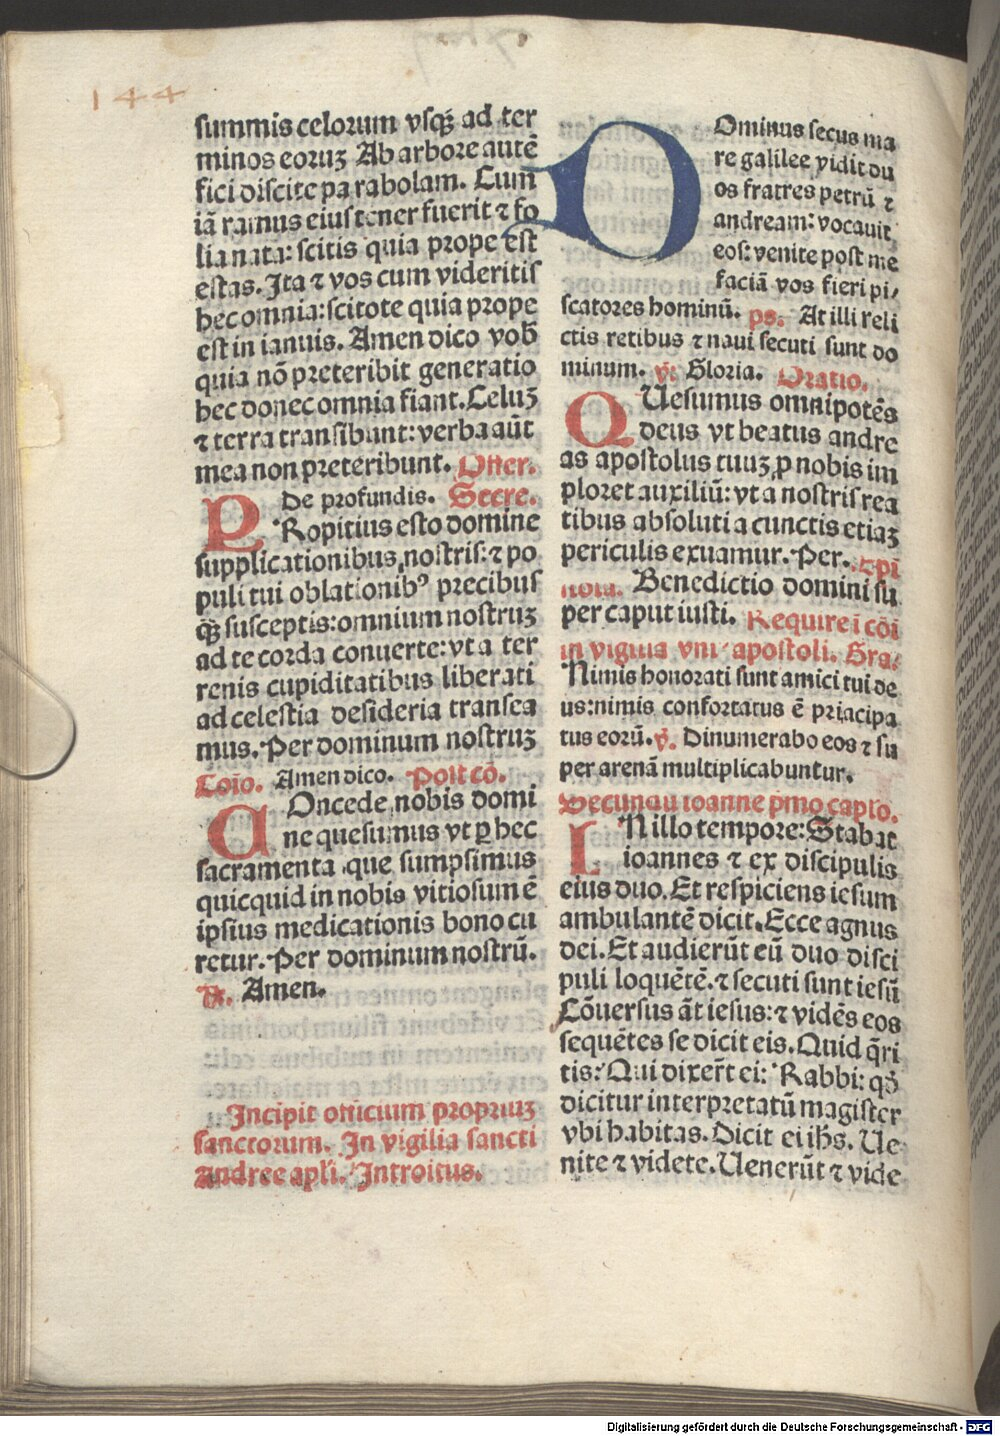 144
summis celorum vsqꝫ ad ter
minos eoruꝫ Ab arbore autē
fici discite parabolam. Cum
iā ramus eius tener fuerit ⁊ fo
lia nata: scitis quia prope est
estas. Ita ⁊ vos cum videritis
hec omnia: scitote quia prope
est in ianuis. Amen dico vob̄
quia nō preteribit generatio
hec donec omnia fiant. Celuꝫ
⁊ terra transibunt: verba aūt
mea non preteribunt. Offer.
De profundis. Secre.
PRopitius esto domine
supplicationibus nostris: ⁊ po
puli tui oblationibꝰ precibus
qꝫ susceptis: omnium nostruꝫ
ad te corda conuerte: vt a ter
renis cupiditatibus liberati
ad celestia desideria transea
mus. Per dominum nostruꝫ
Coīo. Amen dico. Post cō.
COncede nobis domi
ne quesumus vt ꝑ hec
sacramenta que sumpsimus
quicquid in nobis vitiosum ē
ipsius medicationis bono cu
retur. Per dominum nostrū.
℟. Amen.
Incipit officium propriuꝫ
sanctorum. In vigilia sancti
andree apłi. Introitus.
DOminus secus ma
re galilee vidit du
os fratres petrū ⁊
andream: vocauit
eos: venite post me
faciā vos fieri pi/
scatores hominū. ps. At illi reli
ctis retibus ⁊ naui secuti sunt do
minum. ℣. Gloria. Oratio.
QUesumus omnipotēs
deus vt beatus andre
as apostolus tuuꝫ ꝓ nobis im
ploret auxiliū: vt a nostris rea
tibus absoluti a cunctis etiaꝫ
periculis exuamur. Per. Epi
stola. Benedictio domini su
per caput iusti. Require ī cōi
in vigilia vni apostoli. Gra.
Nimis honorati sunt amici tui de
us: nimis confortatus ē principa
tus eorū. ℣. Dinumerabo eos ⁊ su
per arenā multiplicabuntur.
Secundū ioanne pmo capło.
IN illo tempore: Stabat
ioannes ⁊ ex discipulis
eius duo. Et respiciens iesum
ambulantē dicit. Ecce agnus
dei. Et audierūt eū duo disci
puli loquētē. ⁊ secuti sunt iesū
Cōuersus āt iesus: ⁊ vidēs eos
sequētes se dicit eis. Quid q̄ri
tis? Qui dixer̄t ei: Rabbi: qđ
dicitur interpretatū magister
vbi habitas. Dicit ei ih̄s. Ue
nite ⁊ videte. Uenerūt ⁊ vide
Digitalisierung gefördert durch die Deutsche Forschungsgemeinschaft - DFG